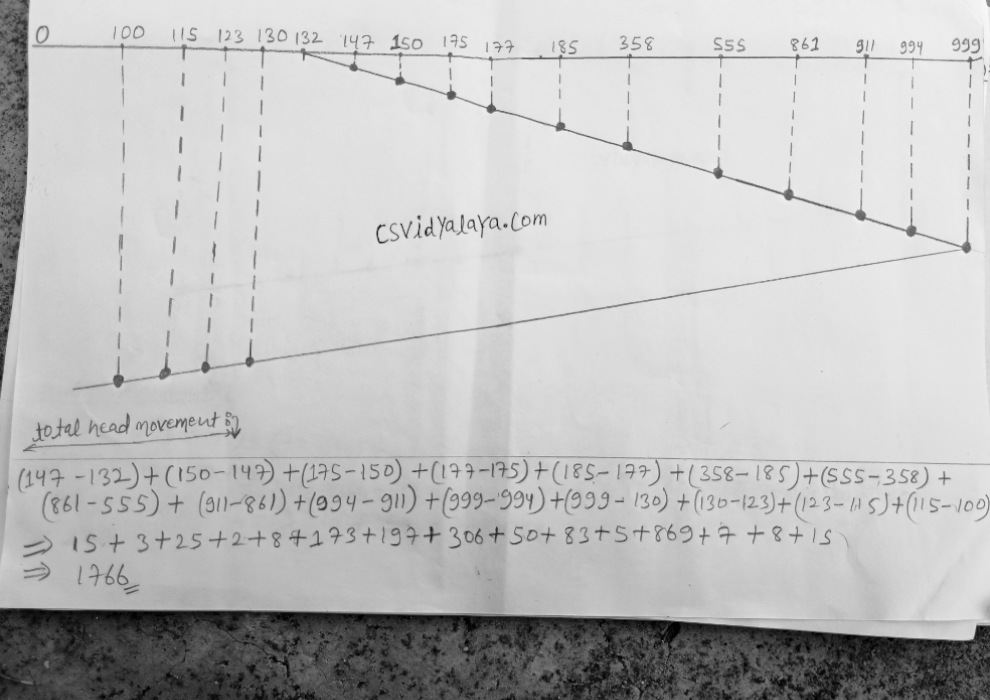 0 100 115 123 130 132 147 150 175 177 185 358 555 861 911 994 999
CSVidyalaya.Com
total head movement :
(147-132)+(150-147)+(175-150)+(177-175)+(185-177)+(358-185)+(555-358)+
(861-555)+(911-861)+(994-911)+(999-994)+(999-130)+(130-123)+(123-115)+(115-100)
⇒ 15+3+25+2+8+173+197+306+50+83+5+869+7+8+15
⇒ 1766